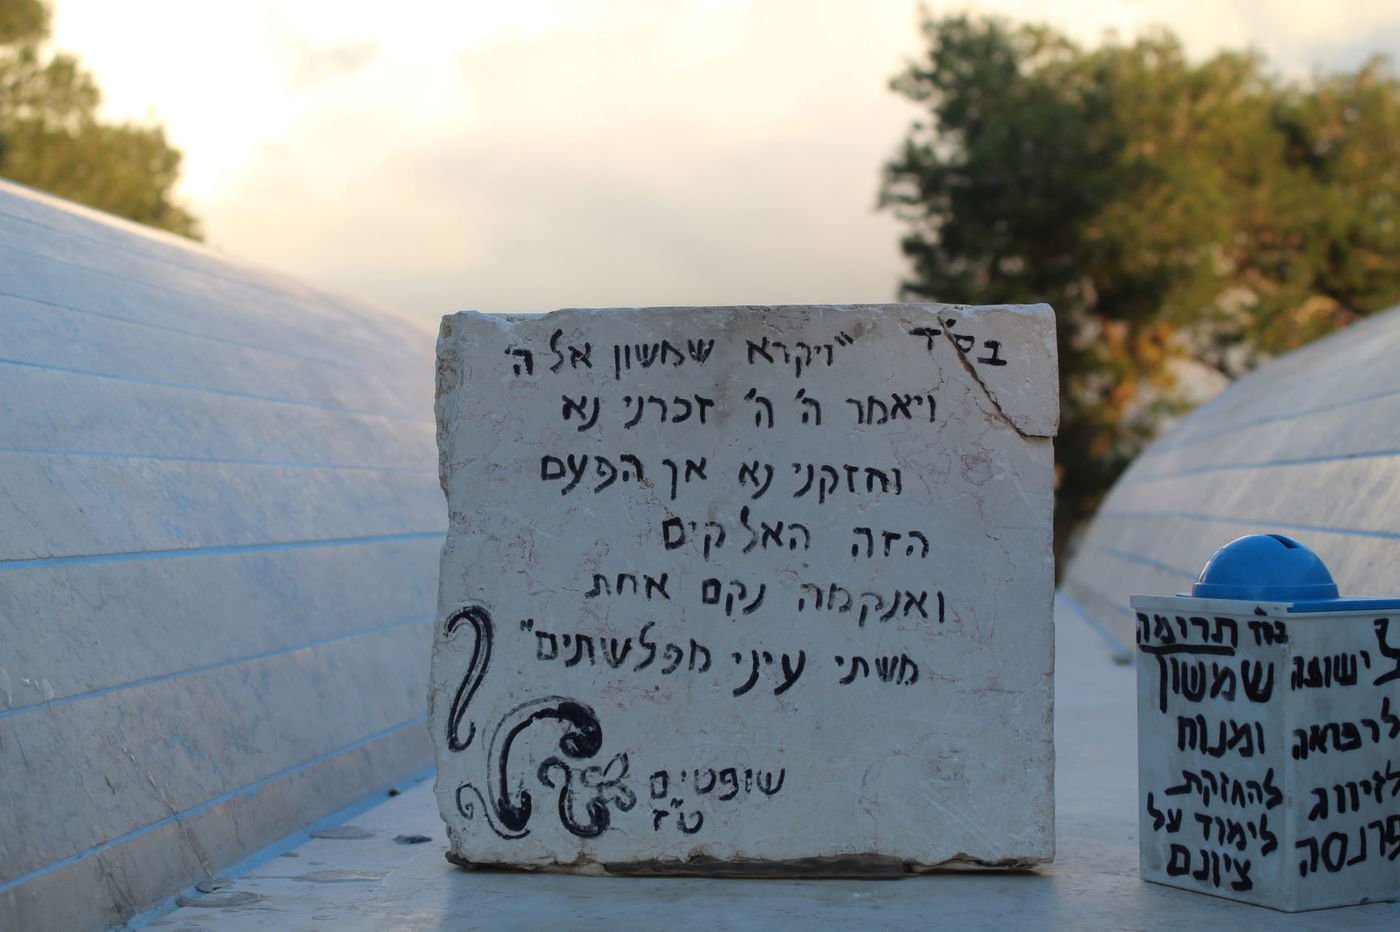 בס"ד "ויקרא שמשון אל ה'
ויאמר ה' ה' זכרני נא
וחזקני נא אך הפעם
הזה האלקים
ואנקמה נקם אחת
משתי עיני מפלשתים"
שופטים
ט"ז
תרומה
שמשון
ומנוח
להחזקת
לימוד על
ציונם
לישועה
לרפואה
לזיווג
פרנסה